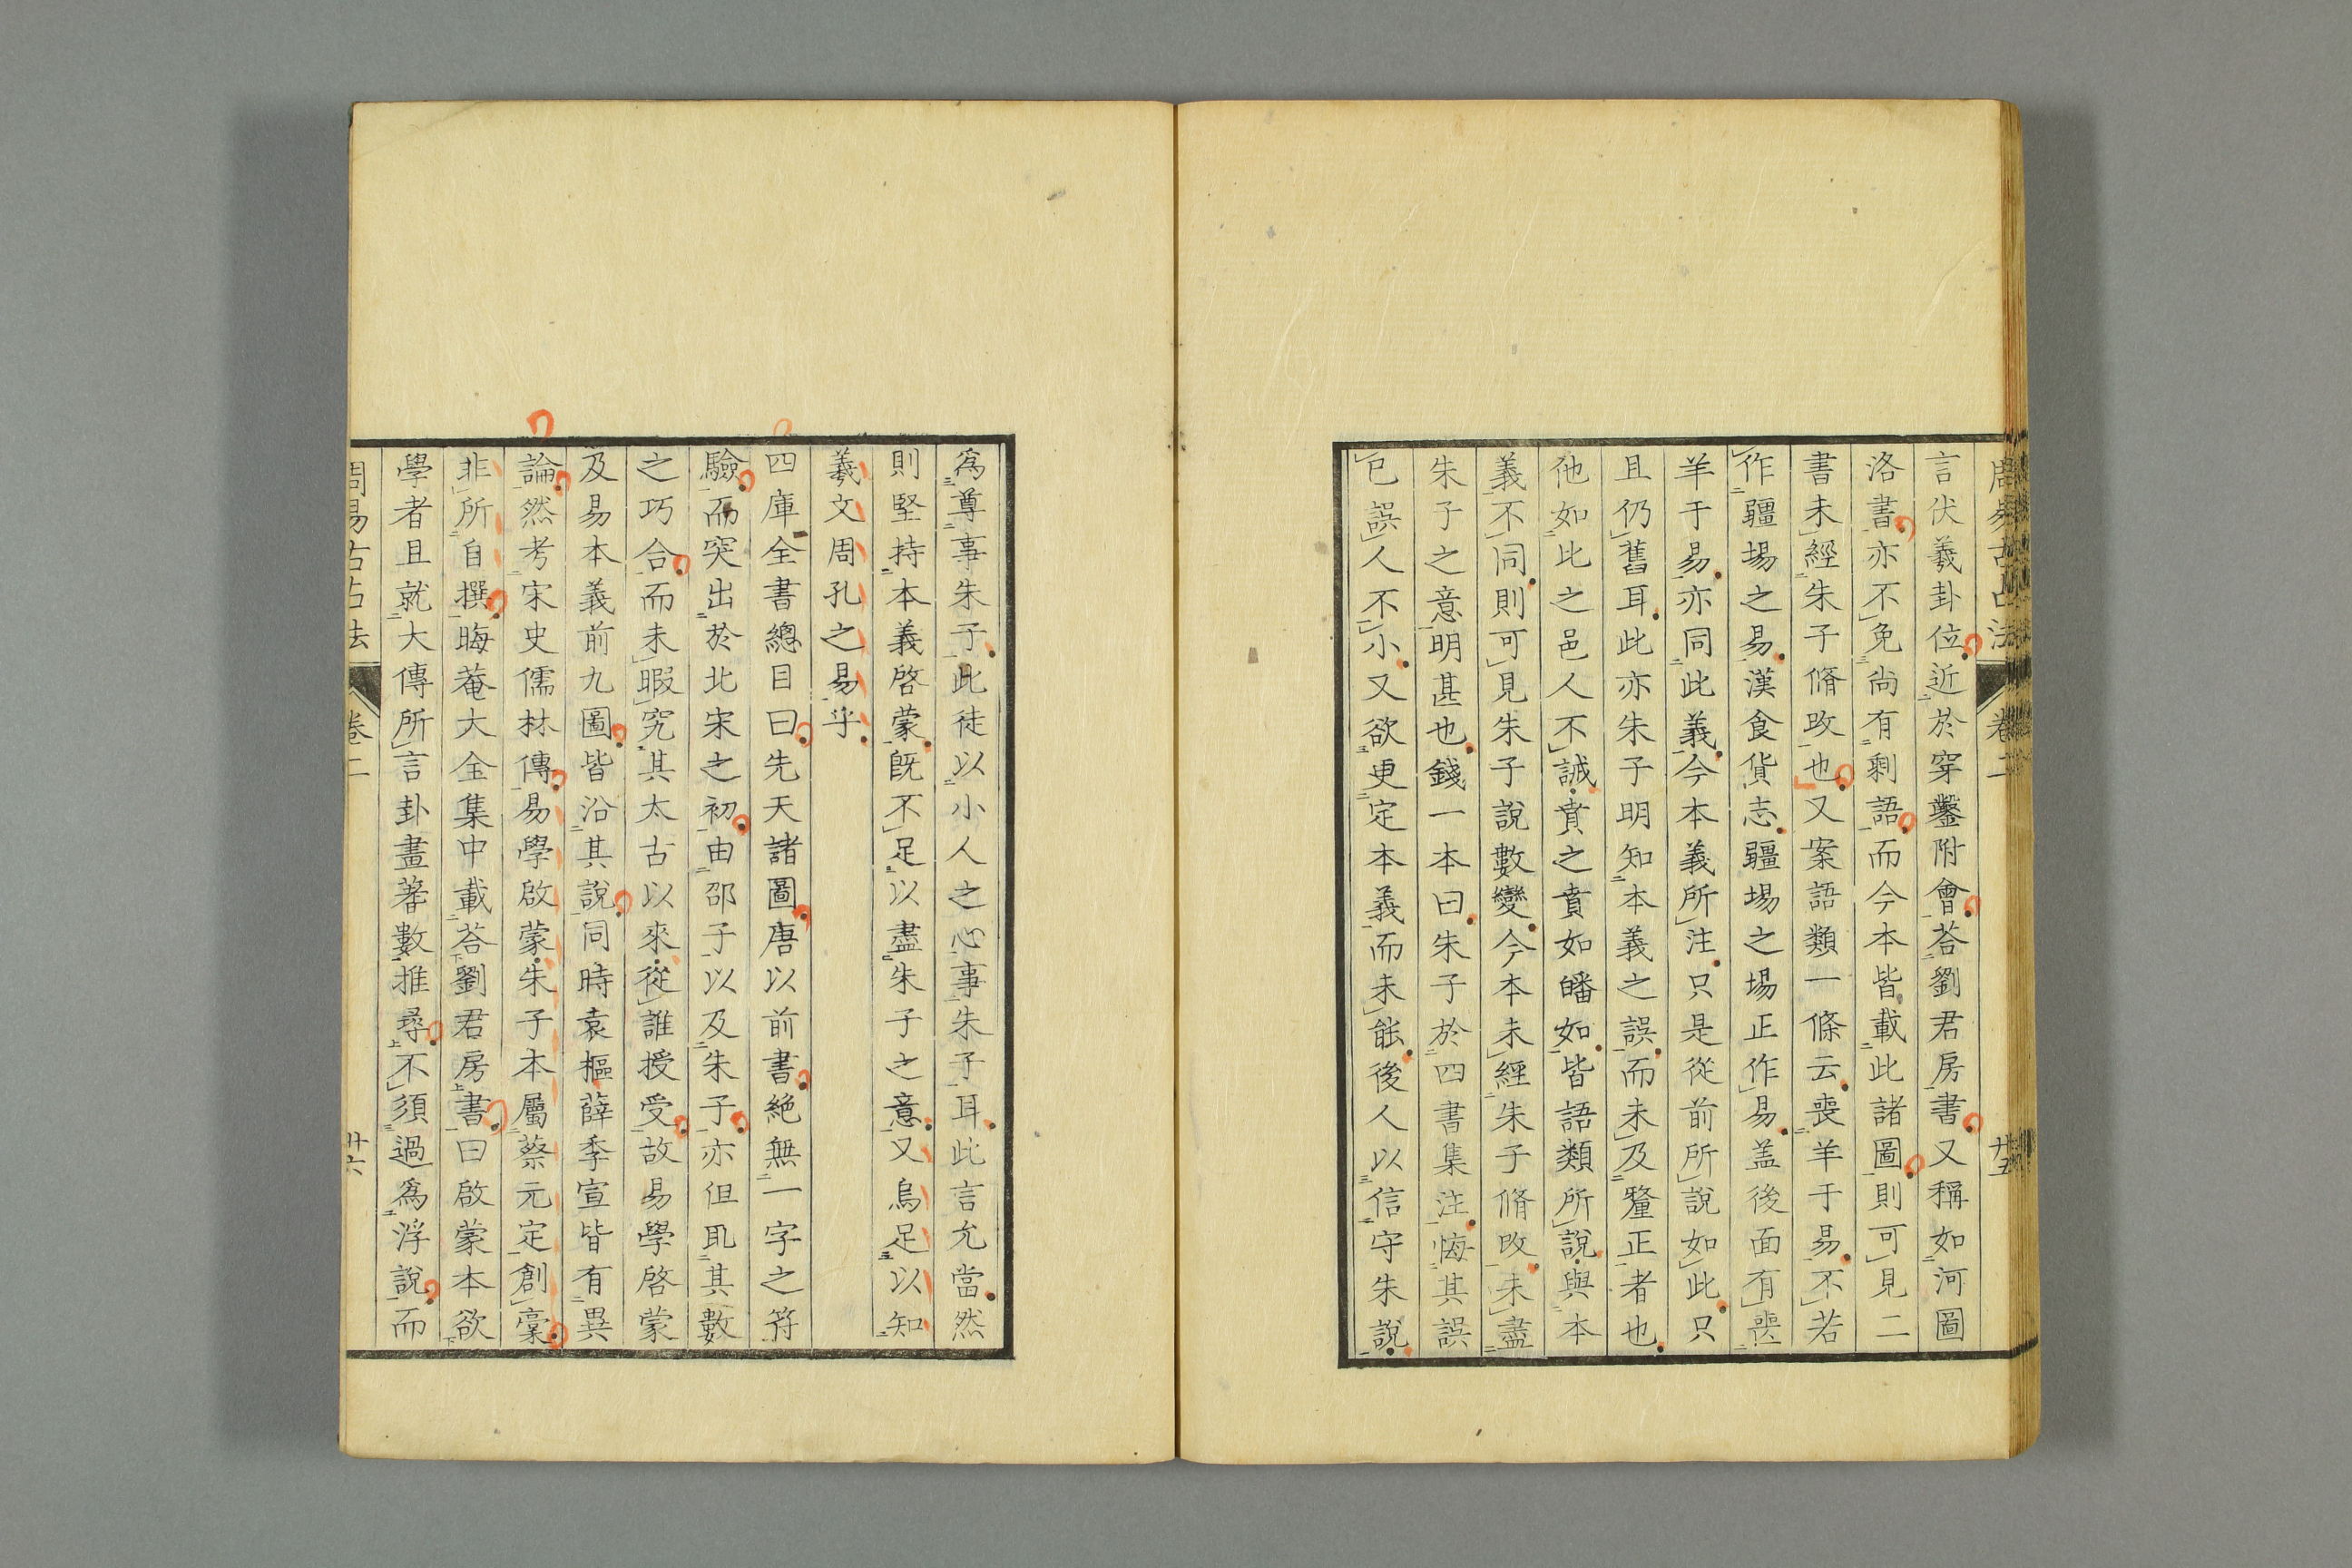 周易古占法 卷二 廿五
言伏羲卦位近於穿鑿附會荅劉君房書又稱如河圖
洛書亦不免尚有剩語而今本皆載此諸圖則可見二
書未經朱子脩改也又案語類一條云喪羊于易不若
作疆埸之易漢食貨志疆埸之埸正作易盖後面有喪
羊于易亦同此義今本義所注只是從前所說如此只
且仍舊耳此亦朱子明知本義之誤而未及釐正者也
他如比之邑人不誡賁之賁如皤如皆語類所說與本
義不同則可見朱子說數變今本未經朱子脩改未盡
朱子之意明甚也錢一本曰朱子於四書集注悔其誤
已誤人不小又欲更定本義而未能後人以信守朱說
為尊事朱子此徒以小人之心事朱子耳此言允當然
則堅持本義啓蒙旣不足以盡朱子之意又烏足以知
羲文周孔之易乎
四庫全書總目曰先天諸圖唐以前書絶無一字之符
驗而突出於北宋之初由邵子以及朱子亦但取其數
之巧合而未暇究其太古以來從誰授受故易學啓蒙
及易本義前九圖皆沿其說同時袁樞薛季宣皆有異
論然考宋史儒林傳易學啟蒙朱子本屬蔡元定創稾
非所自撰晦菴大全集中載荅劉君房書曰啟蒙本欲
學者且就大傳所言卦畫蓍數推尋不須過為浮說而
周易古占法 卷二 廿六